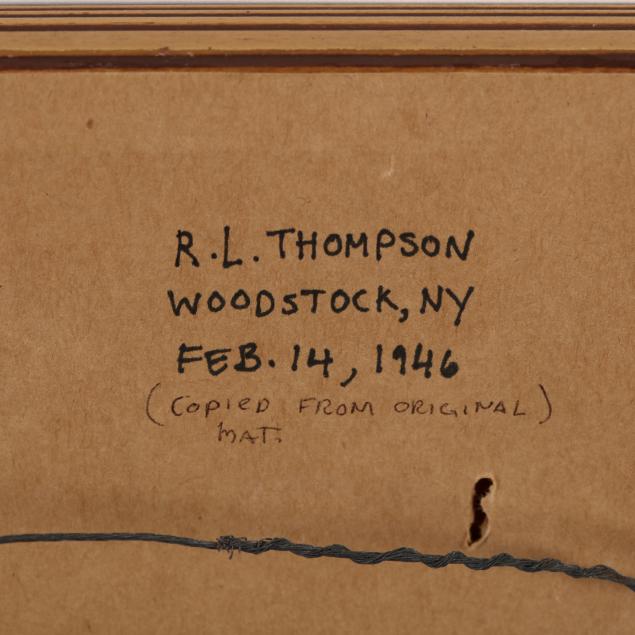 R.L. THOMPSON
WOODSTOCK, NY
FEB. 14, 1946
(COPIED FROM ORIGINAL)
MAT.